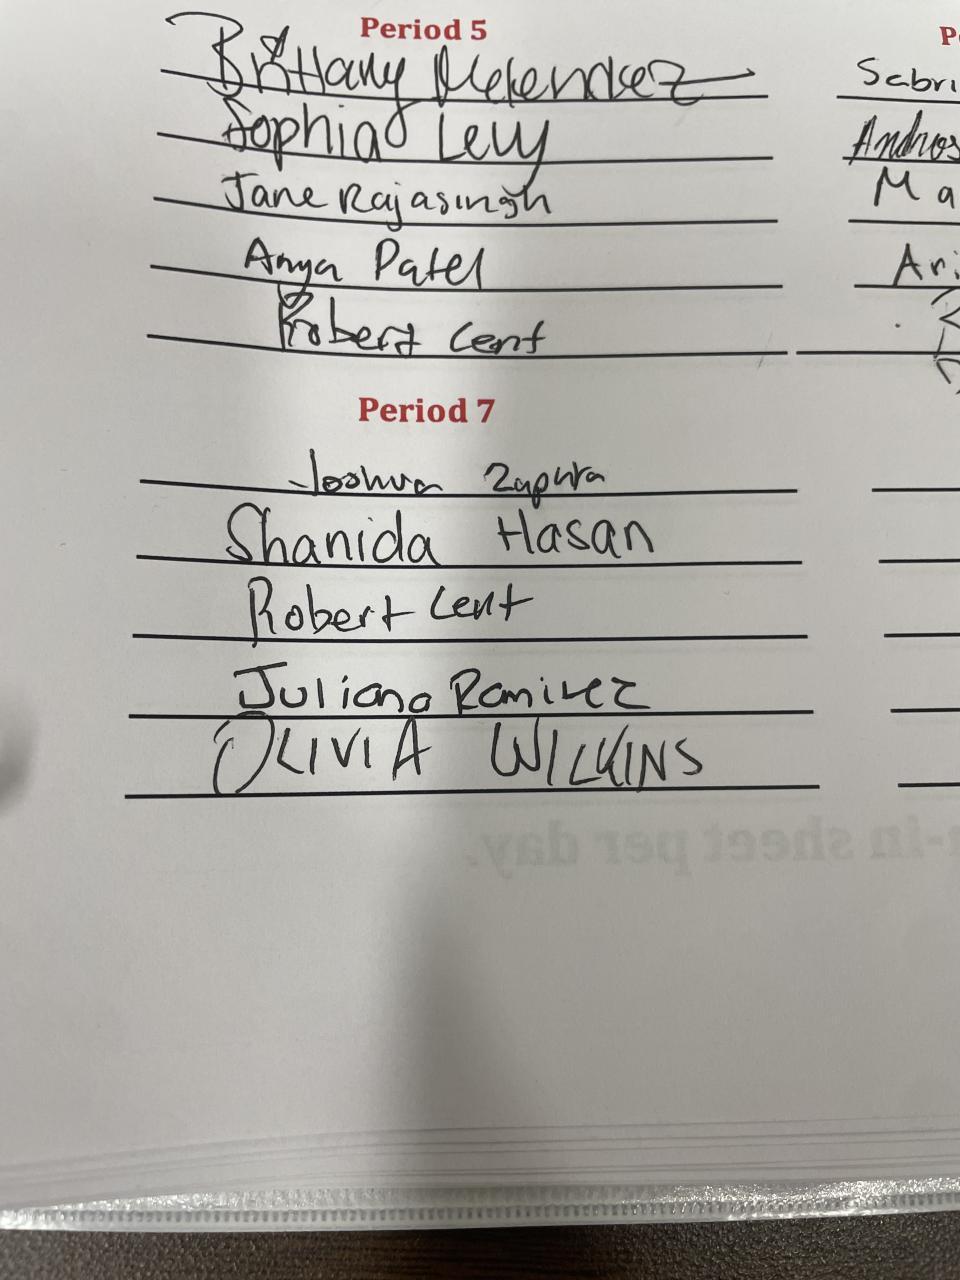 Period 5
Brittany Melendez
Sophia Levy
Jane Rajasingh
Anya Patel
Robert Cent
Period 7
Joshua Zapata
Shanida Hasan
Robert Cent
Juliana Ramirez
OLIVIA WILKINS
P
Sabri
Andros
Ma
Ari
-in sheet per day.